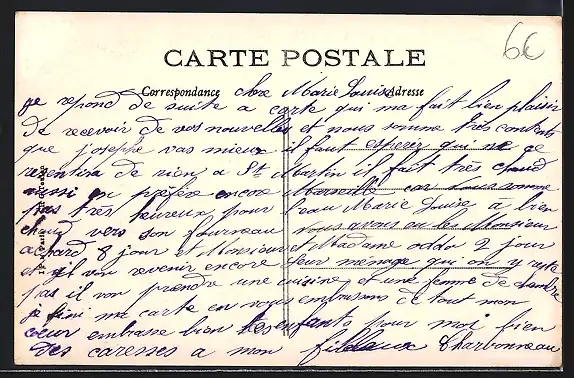 6€
CARTE POSTALE
Correspondance Adresse
chre Marie Louise
je repond de suite a carte qui ma fait bien plaisir
de recevoir de vos nouvelles et nous somme très contents
que josephe vas mieux il faut esperer qui ne ce
resentira de rien a St Martin il fait très chaud
aussi préfère encore Marseille car nous somme
pas très heureux pour l'eau Marie Louise a bien
chaud vers son fourneau nous avons eu les Monsieur
achard 8 jour et Monsieur et Madame oddo 2 jour
et il von revenir encore leur ménage qui on y reste
pas il von prendre une cuisine et une femme de chambre
je fini ma carte en vous embrasans de tout mon
coeur embrasse bien tes enfants pour moi bien
des caresses a mon Charbonneau